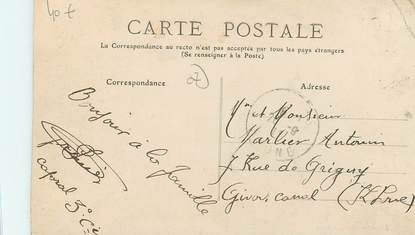 40 F
CARTE POSTALE
La Correspondance au recto n'est pas acceptée par tous les pays étrangers
(Se renseigner à la Poste)
Correspondance
Adresse
Bonjour à la famille
caporal 3e Cie
Mme et Monsieur
Marlier Antonin
7 Rue de Grigny
Givors canal (Rhône)